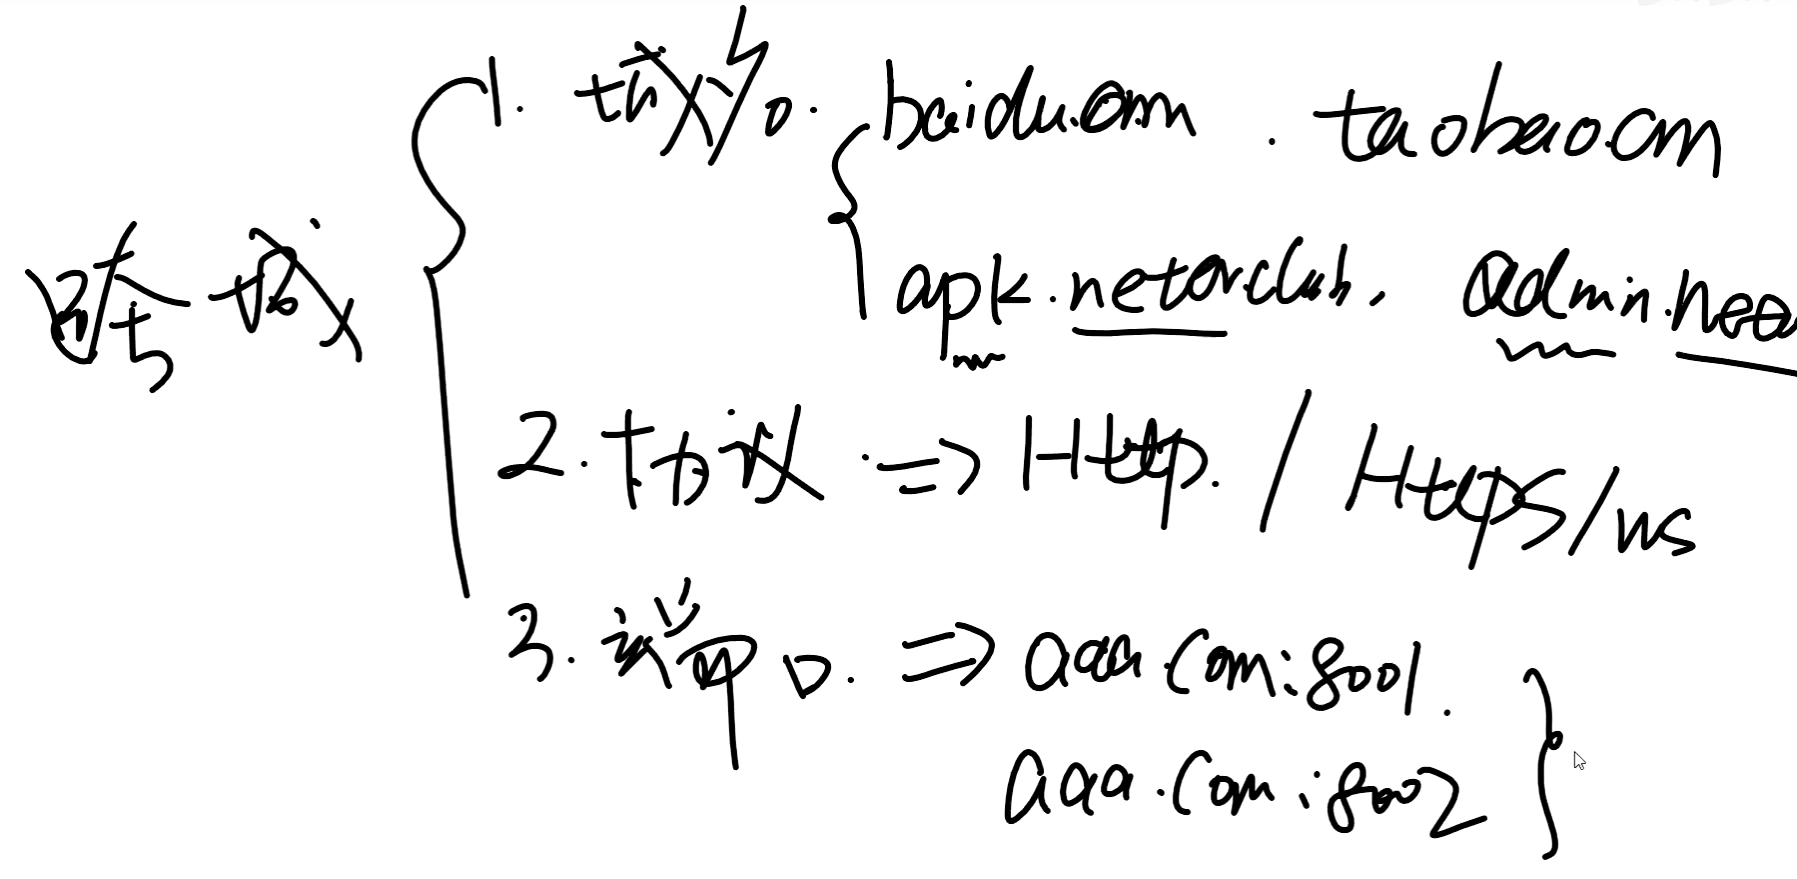 跨域
1. 域名. baidu.com . taobao.com
apk.neter.club. admin.nete
2. 协议 => Http. / Https/ws
3. 端口. => aaa.com:8001.
aaa.com:8002